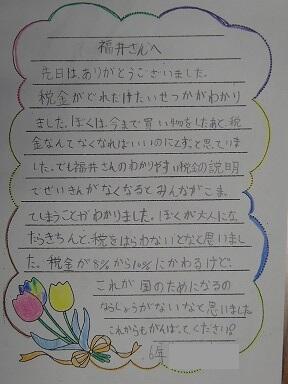 福井さんへ
先日は、ありがとうございました。
税金がどれだけたいせつかがわかり
ました。ぼくは、今まで買い物をしたあと、税
金なんてなくなればいいのにな。と思ってい
ました。でも福井さんのわかりやすい税金の説明
でぜいきんがなくなるとみんながこま、
てしまうことがわかりました。ぼくが大人にな
たらきちんと、税をはらわないとなと思いまし
た。税金が8%から10%にかわるけど、
これが国のためになるの
ならしょうがないなと思いました
これからもがんばってください!
6年